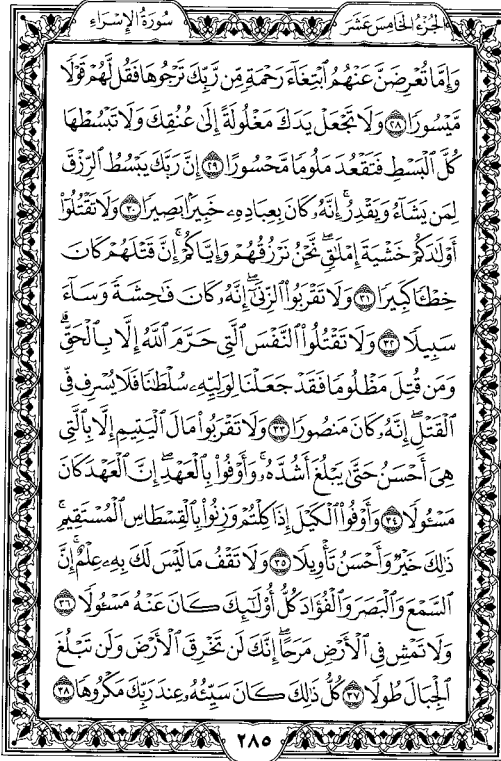 سُورَةُ الإِسْرَاء
الجُزْءُ الخَامِسَ عَشَر
وَإِمَّا تُعْرِضَنَّ عَنْهُمُ ٱبْتِغَآءَ رَحْمَةٍ مِّن رَّبِّكَ تَرْجُوهَا فَقُل لَّهُمْ قَوْلًا
مَّيْسُورًا ٢٨ وَلَا تَجْعَلْ يَدَكَ مَغْلُولَةً إِلَىٰ عُنُقِكَ وَلَا تَبْسُطْهَا
كُلَّ ٱلْبَسْطِ فَتَقْعُدَ مَلُومًا مَّحْسُورًا ٢٩ إِنَّ رَبَّكَ يَبْسُطُ ٱلرِّزْقَ
لِمَن يَشَآءُ وَيَقْدِرُ ۚ إِنَّهُۥ كَانَ بِعِبَادِهِۦ خَبِيرًۢا بَصِيرًا ٣٠ وَلَا تَقْتُلُوٓا۟
أَوْلَـٰدَكُمْ خَشْيَةَ إِمْلَـٰقٍ ۖ نَّحْنُ نَرْزُقُهُمْ وَإِيَّاكُمْ ۚ إِنَّ قَتْلَهُمْ كَانَ
خِطْـًٔا كَبِيرًا ٣١ وَلَا تَقْرَبُوا۟ ٱلزِّنَىٰٓ ۖ إِنَّهُۥ كَانَ فَـٰحِشَةً وَسَآءَ
سَبِيلًا ٣٢ وَلَا تَقْتُلُوا۟ ٱلنَّفْسَ ٱلَّتِى حَرَّمَ ٱللَّهُ إِلَّا بِٱلْحَقِّ ۗ
وَمَن قُتِلَ مَظْلُومًا فَقَدْ جَعَلْنَا لِوَلِيِّهِۦ سُلْطَـٰنًا فَلَا يُسْرِف فِّى
ٱلْقَتْلِ ۖ إِنَّهُۥ كَانَ مَنصُورًا ٣٣ وَلَا تَقْرَبُوا۟ مَالَ ٱلْيَتِيمِ إِلَّا بِٱلَّتِى
هِىَ أَحْسَنُ حَتَّىٰ يَبْلُغَ أَشُدَّهُۥ ۚ وَأَوْفُوا۟ بِٱلْعَهْدِ ۖ إِنَّ ٱلْعَهْدَ كَانَ
مَسْـُٔولًا ٣٤ وَأَوْفُوا۟ ٱلْكَيْلَ إِذَا كِلْتُمْ وَزِنُوا۟ بِٱلْقِسْطَاسِ ٱلْمُسْتَقِيمِ ۚ
ذَٰلِكَ خَيْرٌ وَأَحْسَنُ تَأْوِيلًا ٣٥ وَلَا تَقْفُ مَا لَيْسَ لَكَ بِهِۦ عِلْمٌ ۚ إِنَّ
ٱلسَّمْعَ وَٱلْبَصَرَ وَٱلْفُؤَادَ كُلُّ أُو۟لَـٰٓئِكَ كَانَ عَنْهُ مَسْـُٔولًا ٣٦
وَلَا تَمْشِ فِى ٱلْأَرْضِ مَرَحًا ۖ إِنَّكَ لَن تَخْرِقَ ٱلْأَرْضَ وَلَن تَبْلُغَ
ٱلْجِبَالَ طُولًا ٣٧ كُلُّ ذَٰلِكَ كَانَ سَيِّئُهُۥ عِندَ رَبِّكَ مَكْرُوهًا ٣٨
٢٨٥